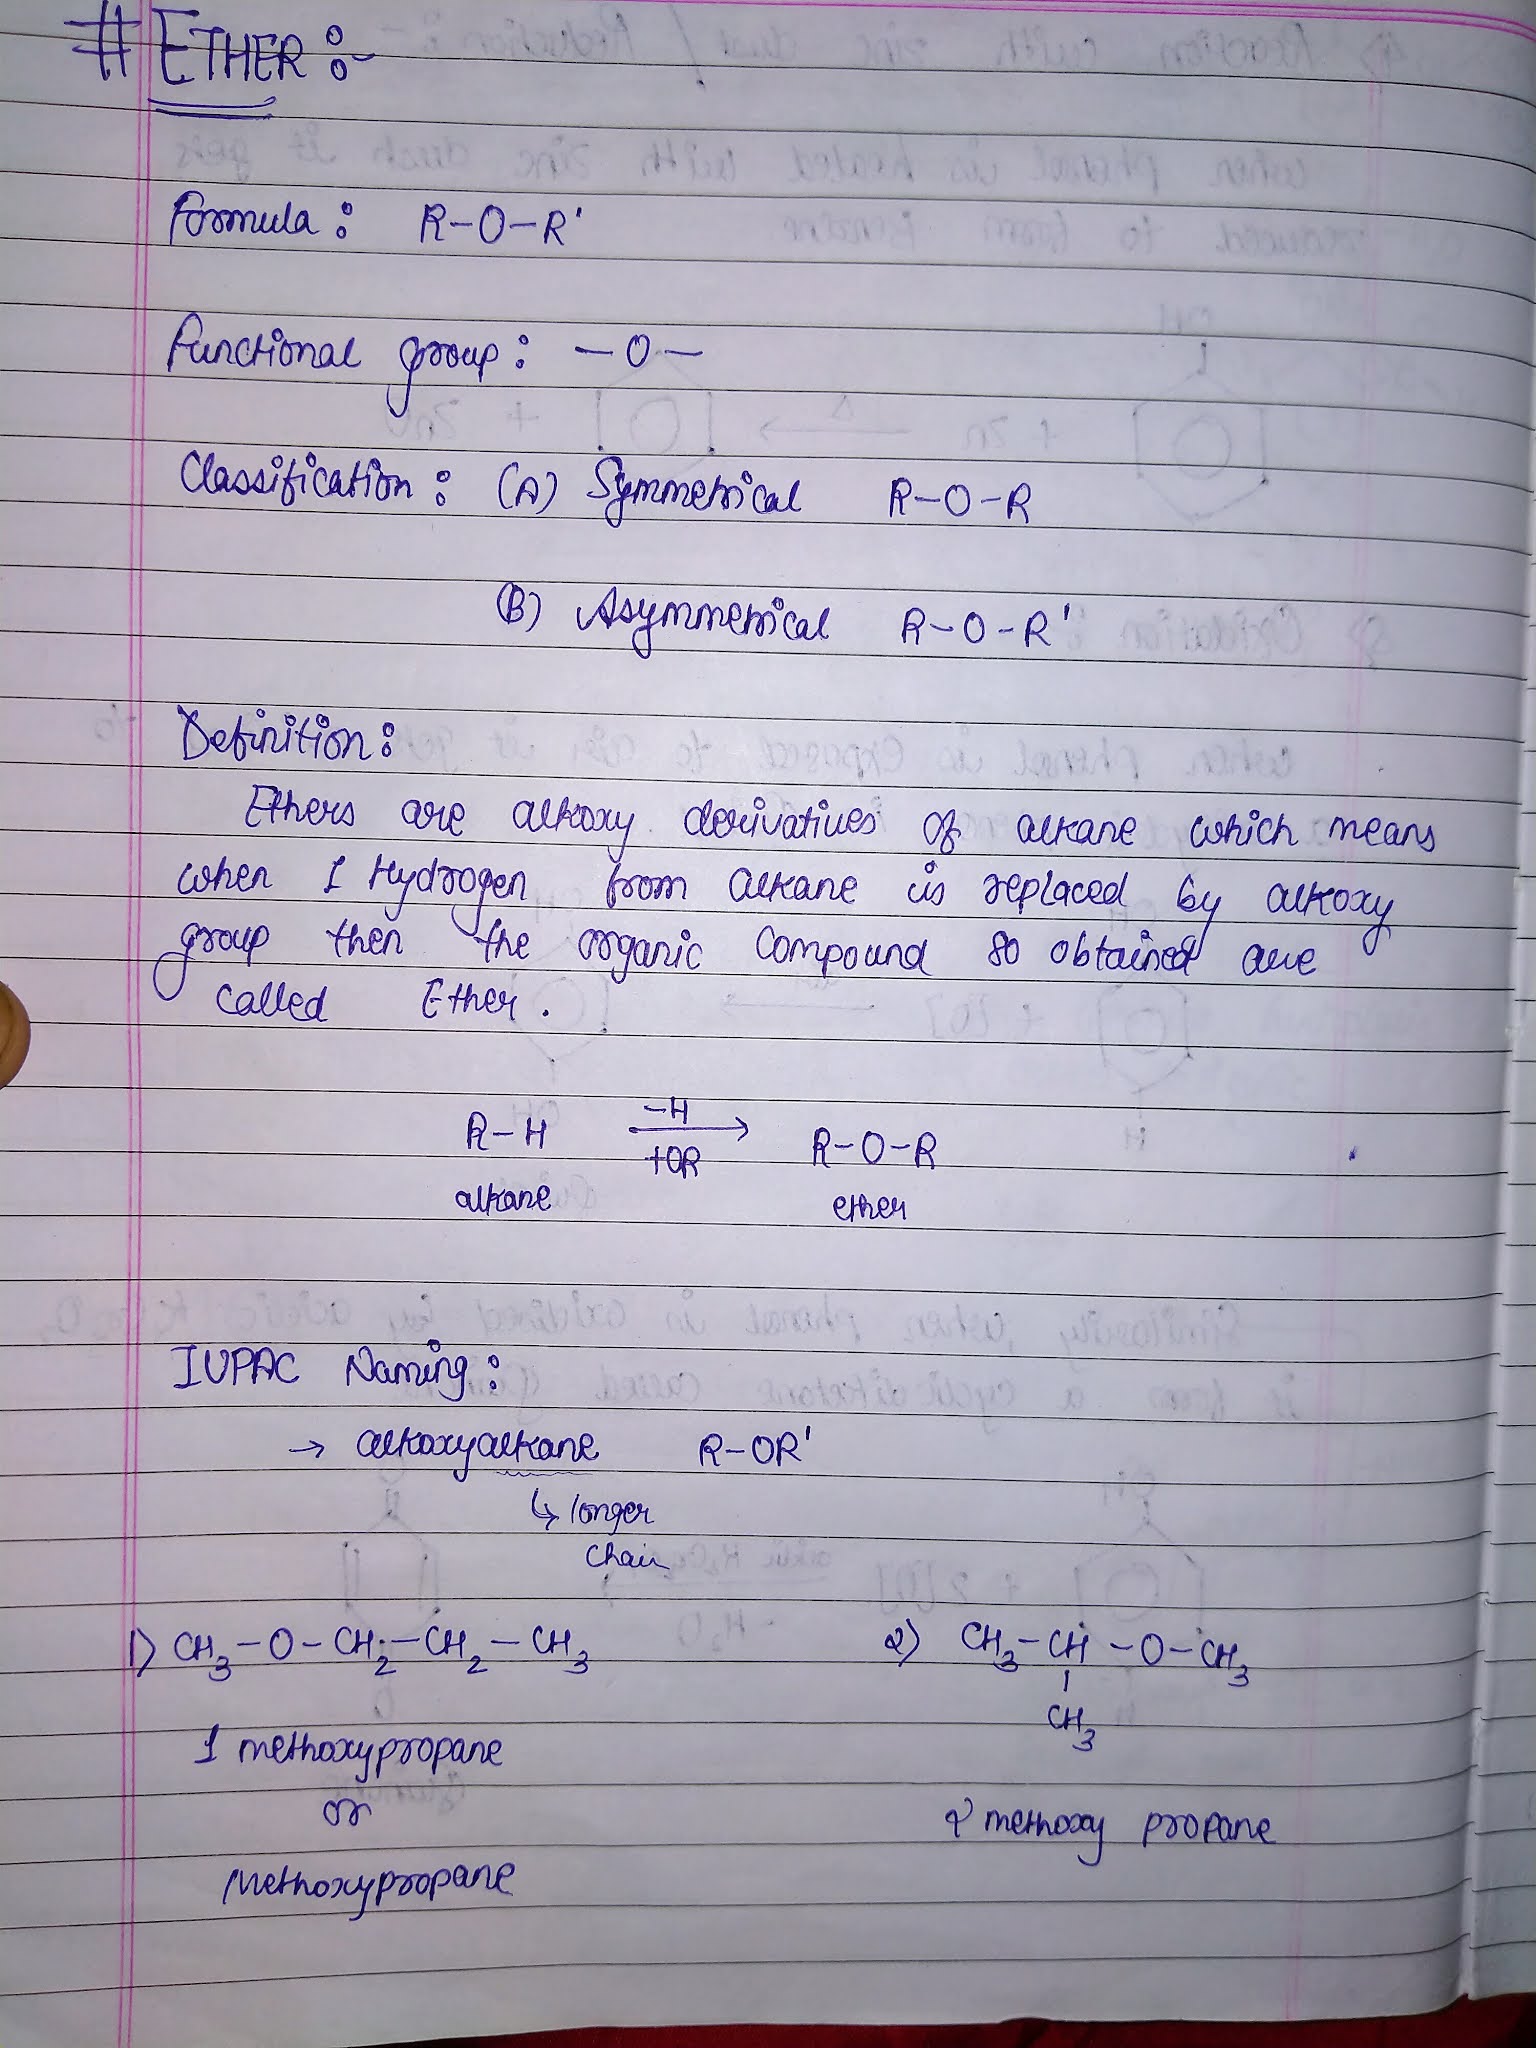 # ETHER :-
Formula : R-O-R'
Functional group : -O-
Classification : (A) Symmetrical R-O-R
(B) Asymmetrical R-O-R'
Definition :
Ethers are alkoxy derivatives of alkane which means
when 1 Hydrogen from alkane is replaced by alkoxy
group then the organic compound so obtained are
called Ether.
-H
R-H ⟶ R-O-R
+OR
alkane ether
IUPAC Naming :
→ alkoxyalkane R-OR'
↳ longer
chain
1) CH₃-O-CH₂-CH₂-CH₃ 2) CH₃-CH-O-CH₃
|
CH₃
1 methoxypropane
or
2 methoxy propane
Methoxypropane